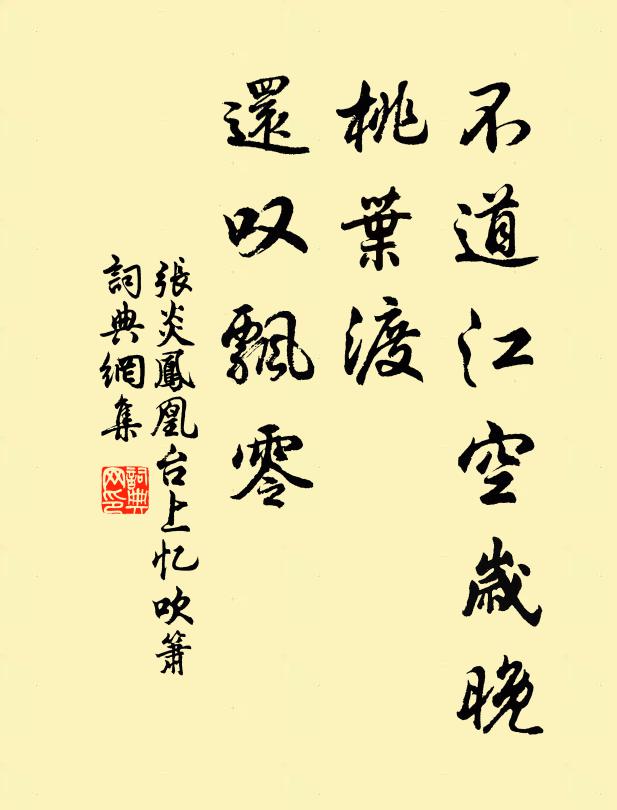 不道江空歲晚
桃葉渡
還叹飄零
張炎鳳凰台上忆吹簫
詞典網集
詞典網印